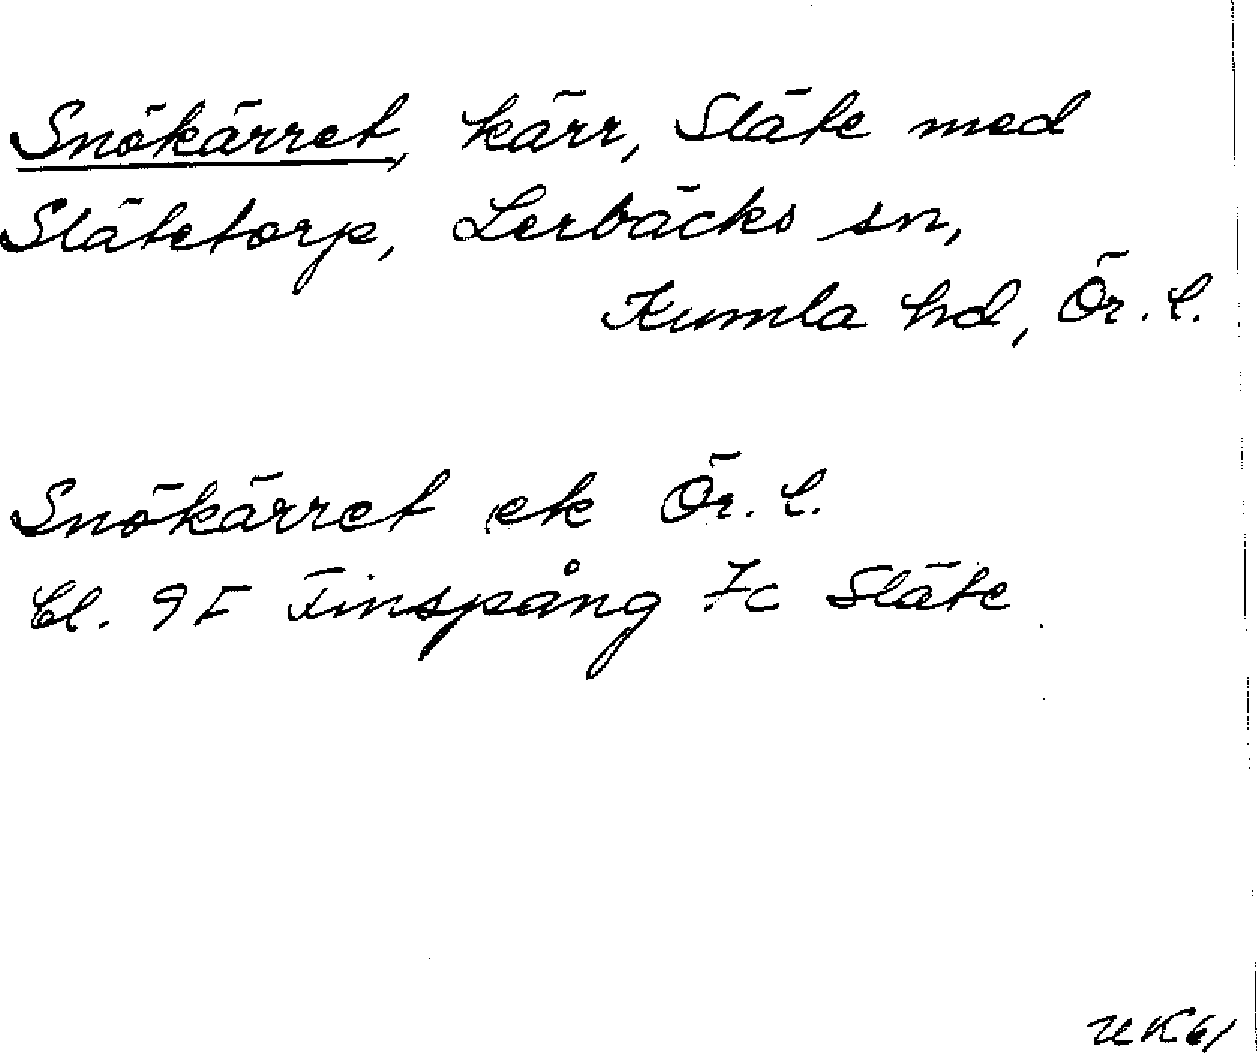 Snökärret, kärr, Släte med
Slätetorp, Lerbäcks sn,
Kumla hd, Ör. l.
Snökärret ek Ör. l.
bl. 9F Finspång 7c Släte
UK61